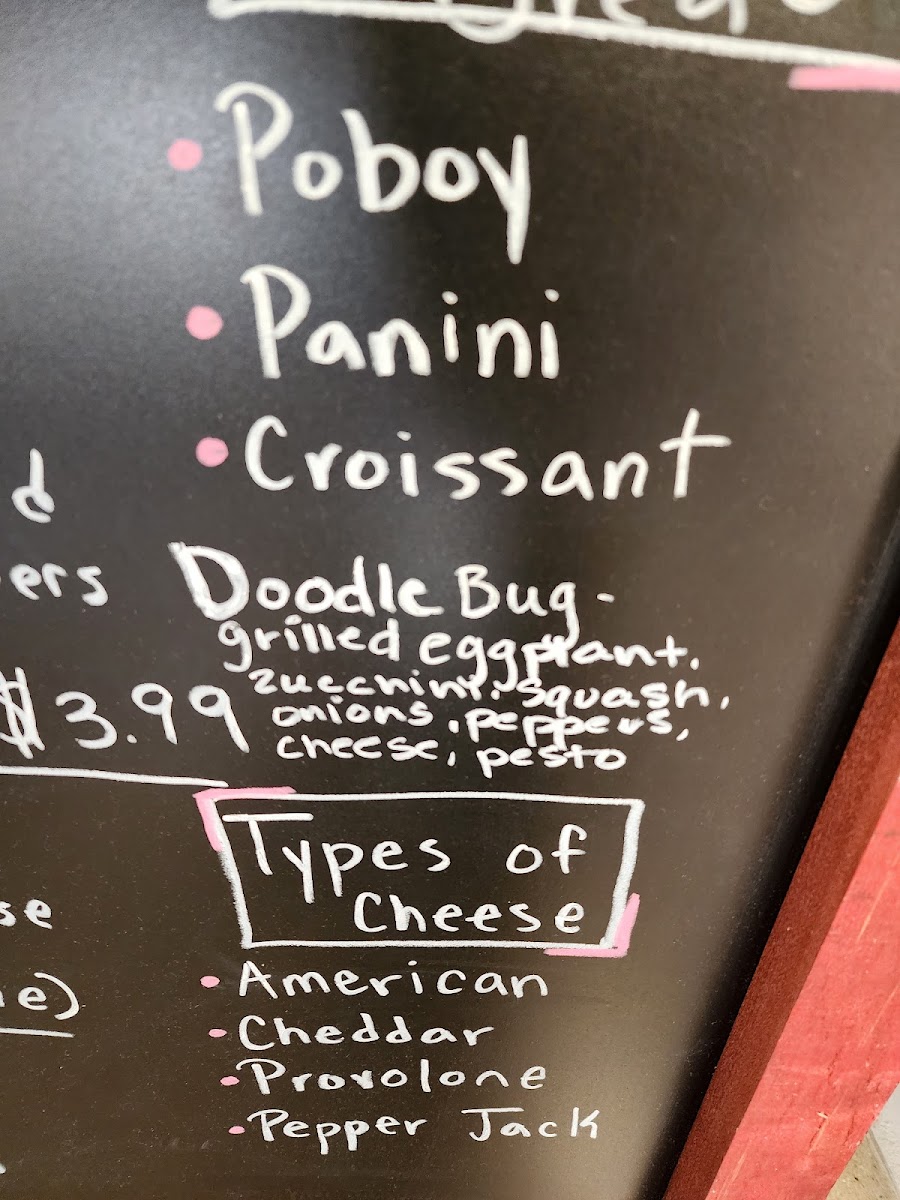 Poboy
Panini
Croissant
d
ers
Doodle Bug -
grilled eggplant,
zucchini, squash,
onions, peppers,
cheese, pesto
$3.99
Types of
Cheese
se
e)
American
Cheddar
Provolone
Pepper Jack